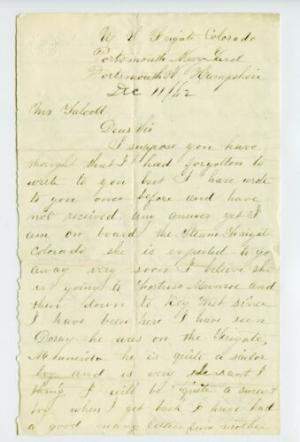 U S Frigate Colorado
Portsmouth Navy Yard
Portsmouth N Hampshire
Dec 11/62
Mr Talcott
Dear Sir
I suppose you have
thought that I had forgotton to
write to you but I have wrote
to you once before and have
not received any answer yet I
am on board the Steam Frigate
Colorado she is expected to go
away very soon I believe she
is going to Fortress Monroe and
then down to Key West since
I have been here I have seen
Dorsey he was on the Frigate
he is quite a sailor
boy and is very
I will be quite a
boy when I get back I have had
a good many letters from mother